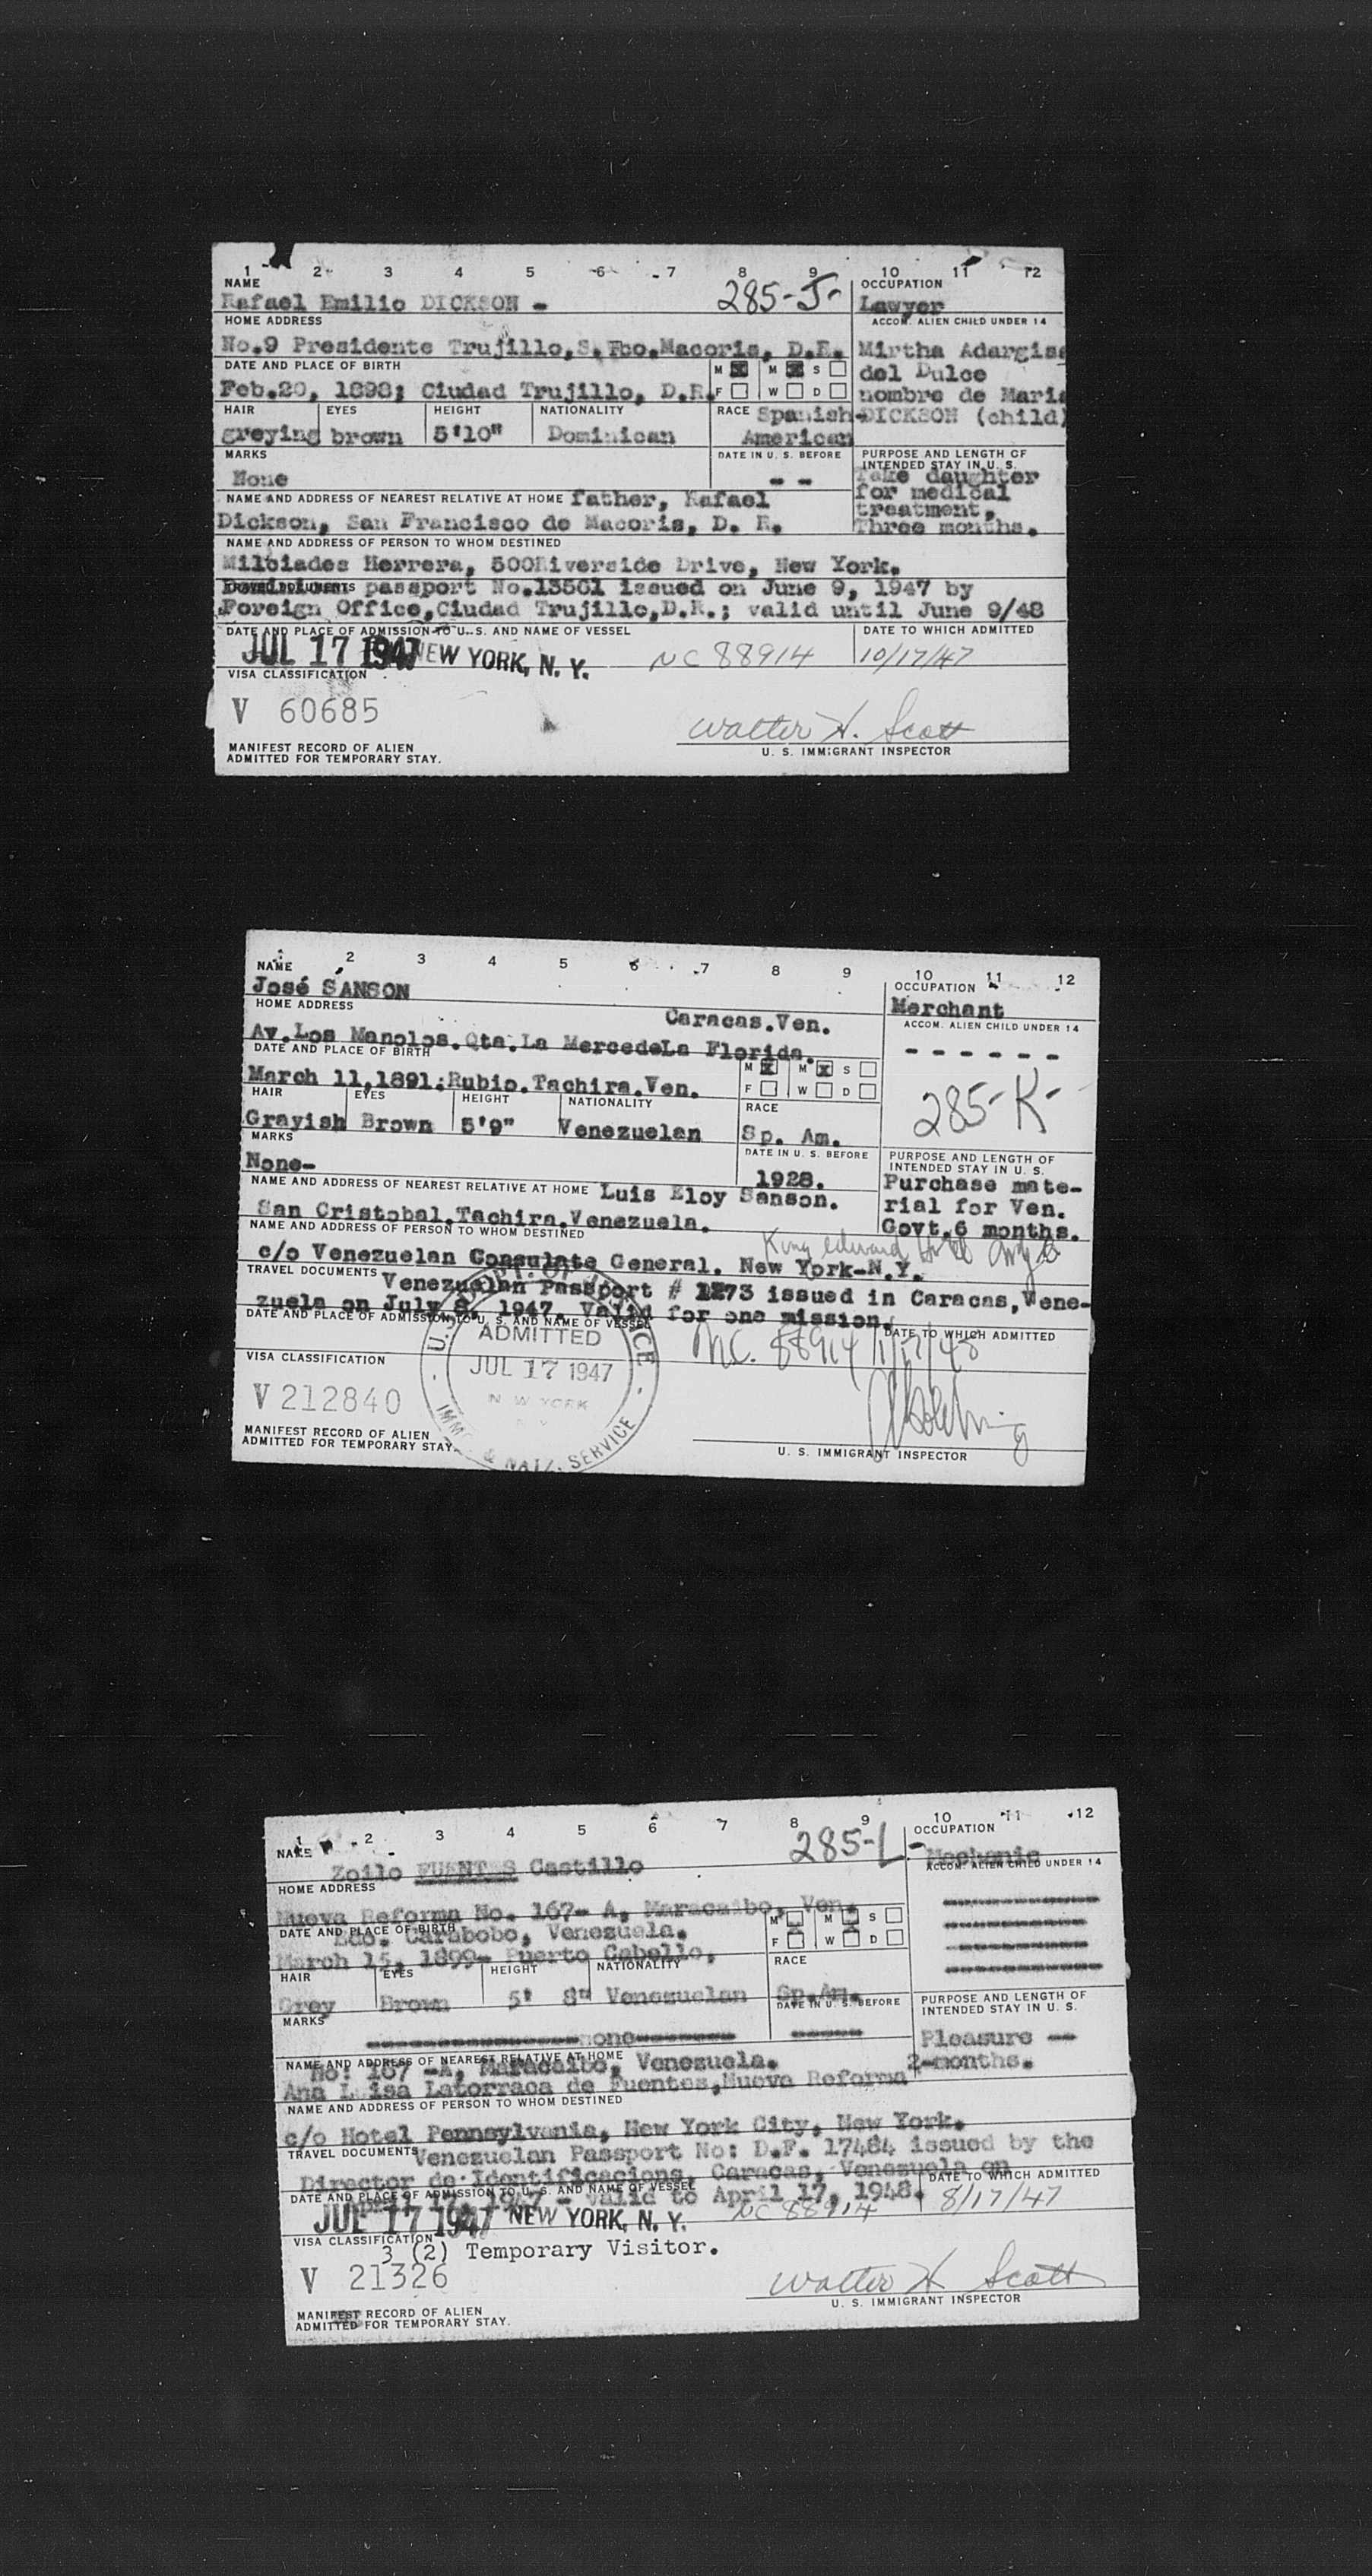 1 2 3 4 5 6 7 8 9 10 11 12
NAME
Rafael Emilio DICKSON -
285-J-
OCCUPATION
Lawyer
HOME ADDRESS
No.9 Presidente Trujillo, S. Fco. Macoris, D.R.
ACCOM. ALIEN CHILD UNDER 14
Mirtha Adargisa
del Dulce
nombre de Maria
DICKSON (child)
DATE AND PLACE OF BIRTH
Feb.20, 1898; Ciudad Trujillo, D.R.
M X M X S
F W D
HAIR EYES HEIGHT NATIONALITY RACE
greying brown 5'10" Dominican Spanish-
American
MARKS
None
DATE IN U. S. BEFORE
- -
PURPOSE AND LENGTH OF
INTENDED STAY IN U. S.
Take daughter
for medical
treatment.
Three months.
NAME AND ADDRESS OF NEAREST RELATIVE AT HOME father, Rafael
Dickson, San Francisco de Macoris, D. R.
NAME AND ADDRESS OF PERSON TO WHOM DESTINED
Milciades Herrera, 500 Riverside Drive, New York.
passport No.13501 issued on June 9, 1947 by
Foreign Office, Ciudad Trujillo, D.R.; valid until June 9/48
DATE AND PLACE OF ADMISSION TO U. S. AND NAME OF VESSEL
DATE TO WHICH ADMITTED
JUL 17 1947 NEW YORK, N. Y. NC 88914 10/17/47
VISA CLASSIFICATION
V 60685
Walter H. Scott
U. S. IMMIGRANT INSPECTOR
MANIFEST RECORD OF ALIEN
ADMITTED FOR TEMPORARY STAY.
1 2 3 4 5 6 7 8 9 10 11 12
NAME
José SANSON
OCCUPATION
Merchant
HOME ADDRESS
Caracas.Ven.
Av.Los Manolos.Qta.La MercedeLa Florida.
ACCOM. ALIEN CHILD UNDER 14
- - - - - -
285-K-
DATE AND PLACE OF BIRTH
March 11,1891;Rubio.Tachira.Ven.
M X M X S
F W D
HAIR EYES HEIGHT NATIONALITY RACE
Grayish Brown 5'9" Venezuelan Sp. Am.
MARKS
None-
DATE IN U. S. BEFORE
1928.
PURPOSE AND LENGTH OF
INTENDED STAY IN U. S.
Purchase mate-
rial for Ven.
Govt.6 months.
NAME AND ADDRESS OF NEAREST RELATIVE AT HOME Luis Eloy Sanson.
San Cristobal.Tachira.Venezuela.
NAME AND ADDRESS OF PERSON TO WHOM DESTINED
King edward Hotel
c/o Venezuelan Consulate General. New York-N.Y.
TRAVEL DOCUMENTS Venezuelan Passport # 1273 issued in Caracas,Vene-
zuela on July 8, 1947. Valid for one mission.
DATE AND PLACE OF ADMISSION TO U. S. AND NAME OF VESSEL
DATE TO WHICH ADMITTED
NC. 88914 1/17/48
ADMITTED
JUL 17 1947
NEW YORK
IMM. & NATZ. SERVICE
VISA CLASSIFICATION
V 212840
MANIFEST RECORD OF ALIEN
ADMITTED FOR TEMPORARY STAY.
U. S. IMMIGRANT INSPECTOR
1 2 3 4 5 6 7 8 9 10 11 12
NAME
Zoilo FUENTES Castillo
285-L-
OCCUPATION
Mechanic
HOME ADDRESS
Nueva Reforma No. 167- A, Maracaibo, Ven.
ACCOM. ALIEN CHILD UNDER 14
DATE AND PLACE OF BIRTH
Edo. Carabobo, Venezuela.
March 15, 1899- Puerto Cabello,
M M S
F W D
HAIR EYES HEIGHT NATIONALITY RACE
Grey Brown 5' 8" Venezuelan Sp.Am.
MARKS
none
DATE IN U. S. BEFORE
PURPOSE AND LENGTH OF
INTENDED STAY IN U. S.
Pleasure --
2-months.
NAME AND ADDRESS OF NEAREST RELATIVE AT HOME
No: 167 -A, Maracaibo, Venezuela.
Ana Luisa Latorraca de Fuentes,Nueva Reforma
NAME AND ADDRESS OF PERSON TO WHOM DESTINED
c/o Hotel Pennsylvania, New York City, New York.
TRAVEL DOCUMENTS Venezuelan Passport No: D.F. 17484 issued by the
Director de Identificacions, Caracas, Venezuela on
DATE AND PLACE OF ADMISSION TO U. S. AND NAME OF VESSEL
April 17, 1947 - valid to April 17, 1948.
DATE TO WHICH ADMITTED
JUL 17 1947 NEW YORK, N. Y. NC 88914 8/17/47
VISA CLASSIFICATION
3 (2) Temporary Visitor.
V 21326
Walter H Scott
U. S. IMMIGRANT INSPECTOR
MANIFEST RECORD OF ALIEN
ADMITTED FOR TEMPORARY STAY.